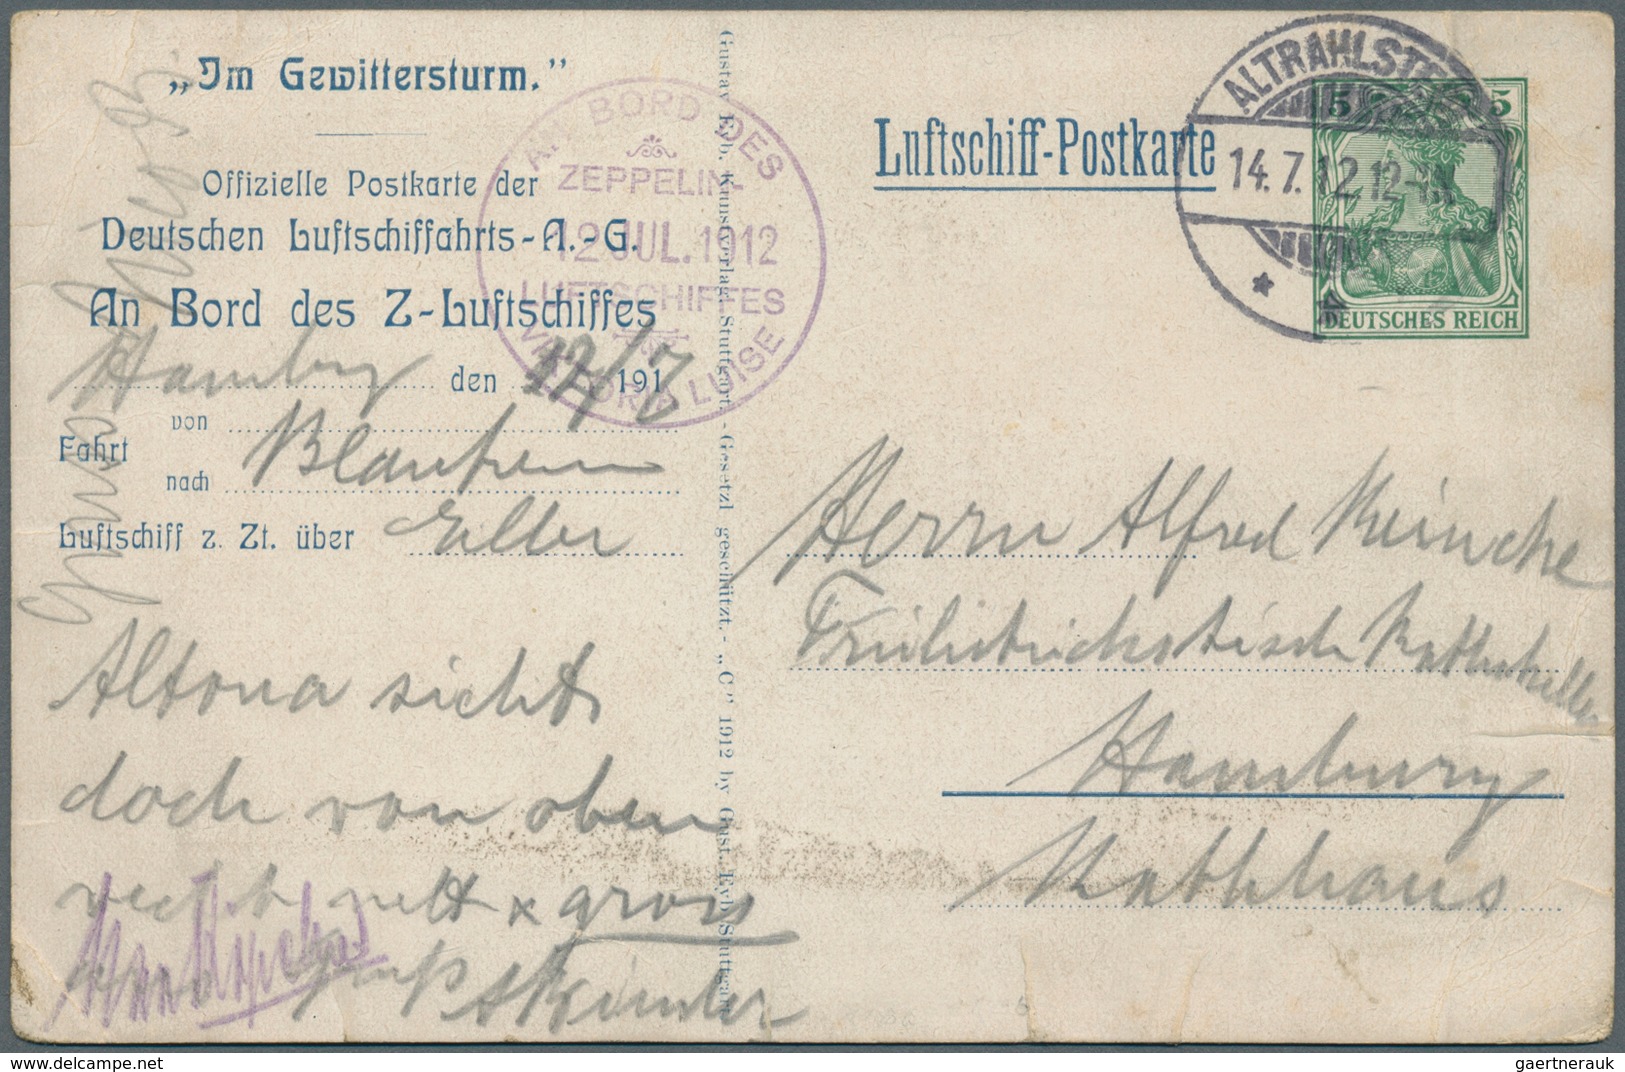 „Im Gewittersturm.”
Offizielle Postkarte der
Deutschen Luftschiffahrts-A.-G.
An Bord des Z-Luftschiffes
Hamburg den 12/7 191
Fahrt von
nach Blankenese
Luftschiff z. Zt. über Elbe
Altona sieht
doch von oben
recht nett x gross
Gruß
AN BORD DES
ZEPPELIN-
12 JUL. 1912
LUFTSCHIFFES
VIKTORIA LUISE
Gustav Eyb, Kunstverlag, Stuttgart. - Gesetzl. geschützt. - „C” 1912 by Gust. Eyb, Stuttgart
Luftschiff-Postkarte
ALTRAHLSTE
14.7.12.12-1N
5 5
DEUTSCHES REICH
Herrn Alfred Reincke
Frühstückstisch Rathskeller
Hamburg
Rathhaus
gaertnerauk